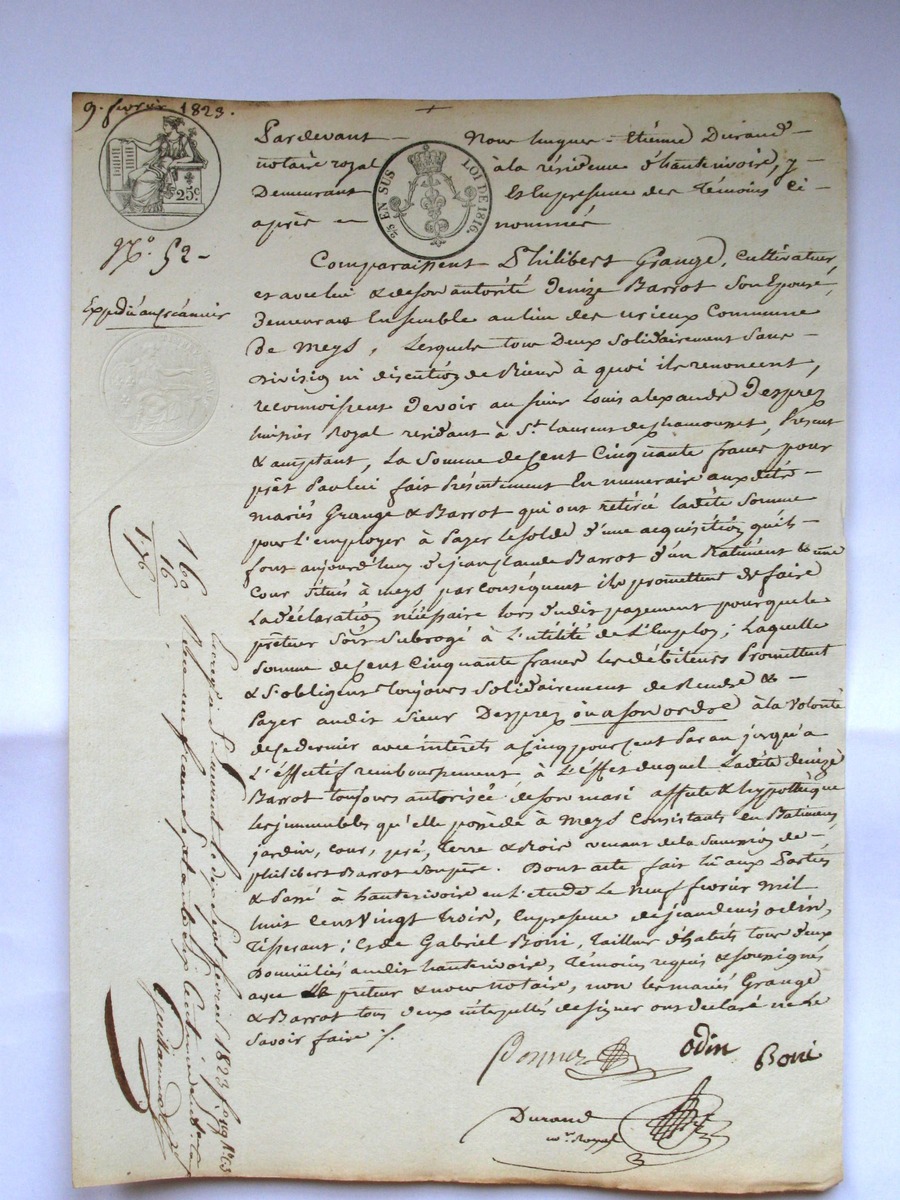 9. fevrier 1823.
25c.
25 EN SUS LOI DE 1816.
N.o 52 -
Expédié au créancier
Pardevant - Nous hugues - Etienne Durand
notaire royal à la résidence d'hauterivoire, y
Demeurant Et En presence des Témoins ci -
après en nommés
Comparaissent Philibert Grange, cultivateur
et avec lui & de son autorité Denize Barrot Son Epouse,
Demeurans Ensemble au lieu des Commune
de Meys, Lesquels tous Deux Solidairement Sans
Division ni discution de Biens à quoi ils renoncent,
reconnoissent Devoir au sieur Louis alexandre Desprez
huissier Royal residant à St. Laurent de chamousset, Présent
& acceptant, La Somme de Cent Cinquante francs pour
prêt Par lui fait Présentement En numeraire aux dits
mariés Grange & Barrot qui ont retiré ladite Somme
pour L'employer à Payer le solde d'une acquisition qu'ils
font aujourd'huy de jean Claude Barrot d'un Batiment & une
Cour Situés à meys par conséquent ils promettent de faire
La déclaration nécéssaire lors dudit payement pour que le
prêteur Soit Subrogé à L'utilité de L'Emploi; Laquelle
Somme de Cent Cinquante francs les débiteurs Promettent
& S'obligent toujours Solidairement de Rendre & -
Payer audit Sieur Desprez ou a son ordre à la volonté
de ce dernier avec intérêts a cinq pour cent Par an jusqu'a
L'effectif remboursement à L'éffet duquel Ladite denize
Barrot toujours autorisée de son mari affecte & hypothèque
Les immeubles qu'elle possède à Meys Consistants en Batiments,
jardin, cour, pré, terre & Bois venant de la Succession de -
philibert Barrot son père. Dont acte fait lû aux Parties
& Passé à hauterivoir en L'etude Le neuf fevrier mil
huit Cent Vingt trois, En presence de jean denis odin,
Tisserant; Et de Gabriel Boni, tailleur d'habits tous deux
Domiciliés audit hauterivoir, témoins requis & soussignés
avec le prêteur & nous notaire, non les mariés Grange
& Barrot tous deux intérpellés de signer ont déclaré ne le
Savoir faire ./.
odin
Boni
Durand
n.re Royal
1 60
16
1 76
fevrier 1823